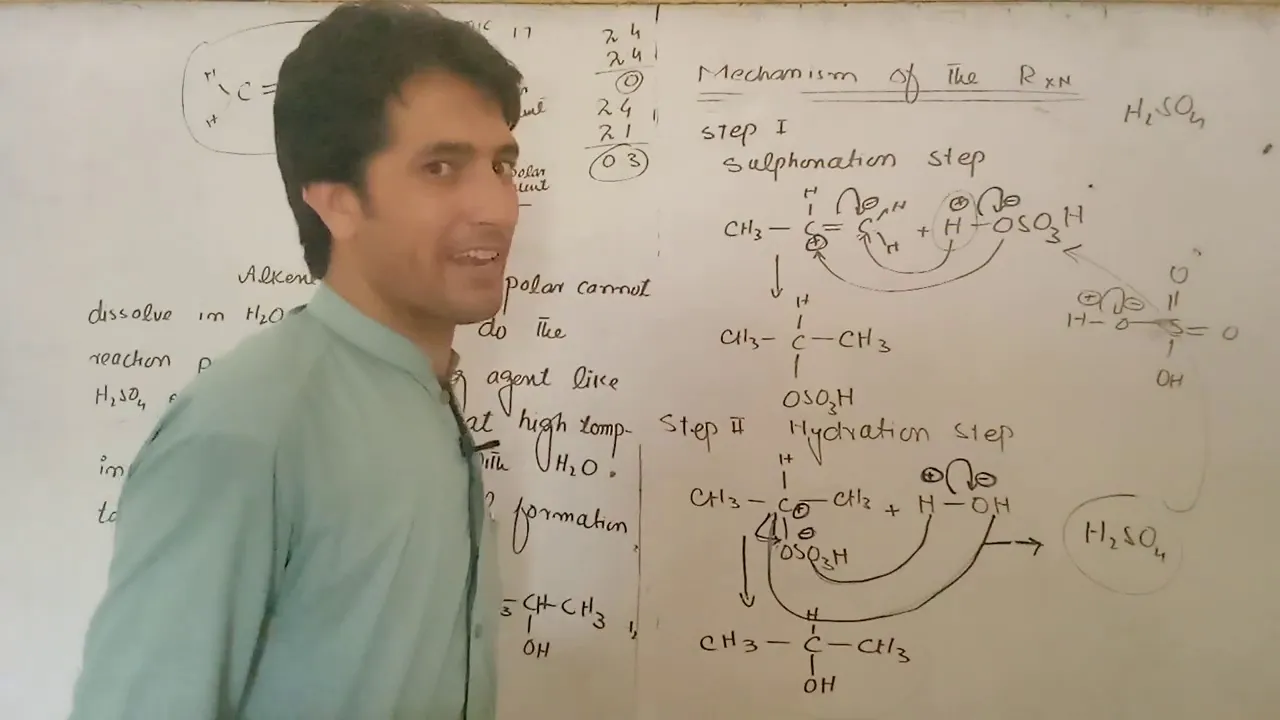 H
C =
H
17
24
24
0
24
21
03
polar
Alkene
polar cannot
dissolve in H₂O
do the
reaction
agent like
H₂SO₄
at high temp-
in
H₂O.
to
formation
CH-CH₃
OH
Mechanism of the RXN
H₂SO₄
Step I
Sulphonation step
H ⊖ H ⊕ ⊖
CH₃ — C = C + H — OSO₃H
⊕ H
H
CH₃ — C — CH₃
OSO₃H
O
⊕ ⊖ ||
H — O — S = O
OH
Step II Hydration step
H ⊕ ⊖
CH₃ — C — CH₃ + H — OH
⊕
⊖
OSO₃H
H₂SO₄
H
CH₃ — C — CH₃
OH